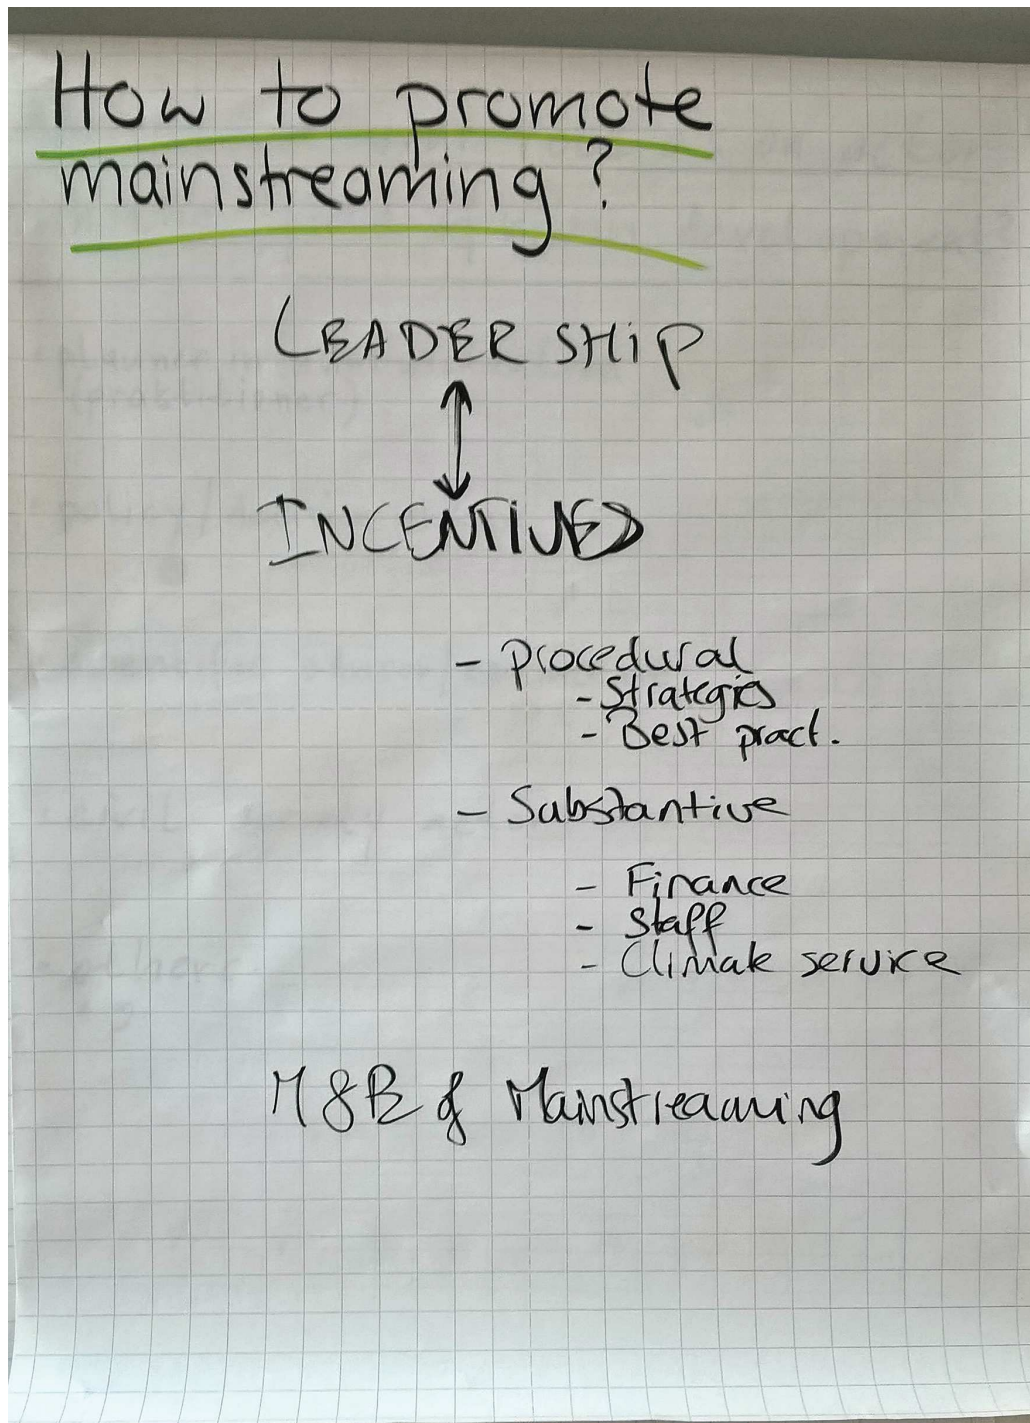 How to promote
mainstreaming?
LEADERSHiP
INCENTIVES
- Procedural
- Strategies
- Best pract.
- Substantive
- Finance
- Staff
- Climate service
M&E of Mainstreaming